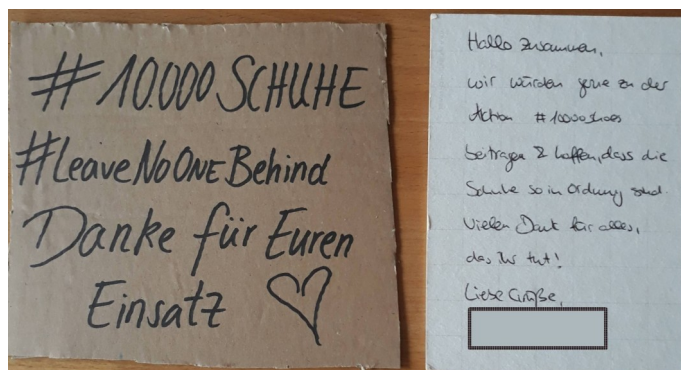 #10.000 SCHUHE
#LeaveNoOneBehind
Danke für Euren
Einsatz ♡
Hallo zusammen,
wir würden gerne zu der
Aktion #10000shoes
beitragen & hoffen, dass die
Schuhe so in Ordnung sind.
Vielen Dank für alles,
das ihr tut!
Liebe Grüße,